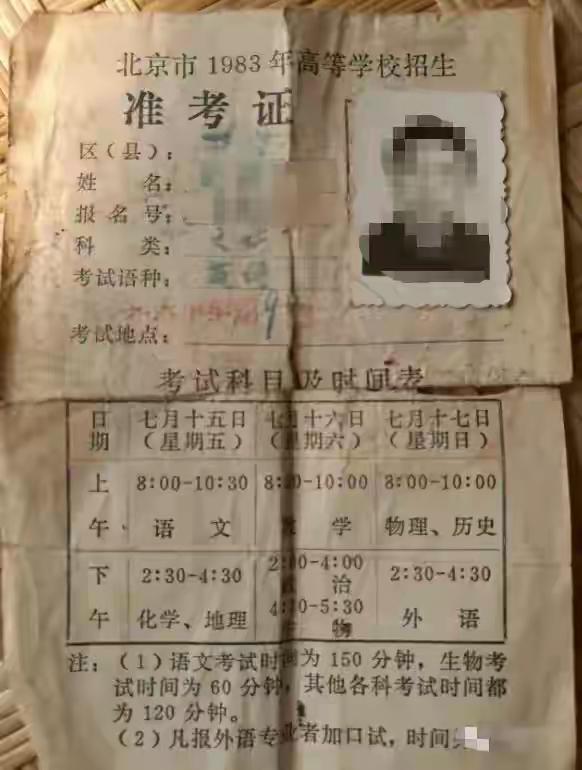 北京市1983年高等学校招生
准考证
区(县):
姓 名:
报名号:
科 类:
考试语种:
考试地点:
考试科目及时间表
日期 七月十五日(星期五) 七月十六日(星期六) 七月十七日(星期日)
上午 8:00-10:30 语文 8:00-10:00 数学 8:00-10:00 物理、历史
下午 2:30-4:30 化学、地理 2:00-4:00 政治 4:30-5:30 生物 2:30-4:30 外语
注:(1)语文考试时间为150分钟,生物考
试时间为60分钟,其他各科考试时间都
为120分钟。
(2)凡报外语专业者加口试,时间